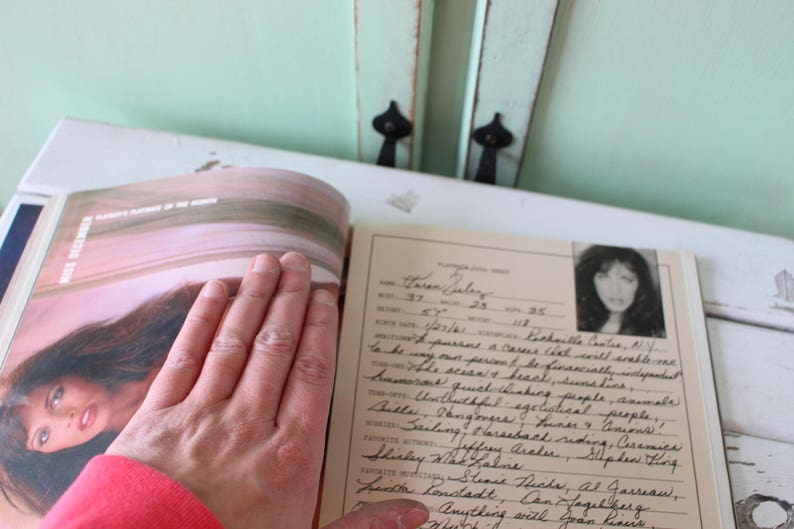 MISS DECEMBER PLAYBOY'S PLAYMATE OF THE MONTH
PLAYMATE DATA SHEET
NAME: Karen
BUST: 37 WAIST: 23 HIPS: 35
HEIGHT: 5'7" WEIGHT: 118
BIRTH DATE: 1/27/61 BIRTHPLACE: Rockville Centre, N.Y.
AMBITIONS: To pursue a career that will enable me
to be my own person & be financially independent
TURN-ONS: The ocean & beach, sunshine,
humorous quick-thinking people, animals
TURN-OFFS: Untruthful egotistical people,
Bills, Hangovers, Liver & Onions!
HOBBIES: Sailing, Horseback riding, Ceramics
FAVORITE AUTHORS: Jeffrey Archer, Stephen King
Shirley MacLaine
FAVORITE MUSICIANS: Stevie Nicks, Al Jarreau,
Linda Ronstadt, Dan Fogelberg
Anything with Joan Rivers